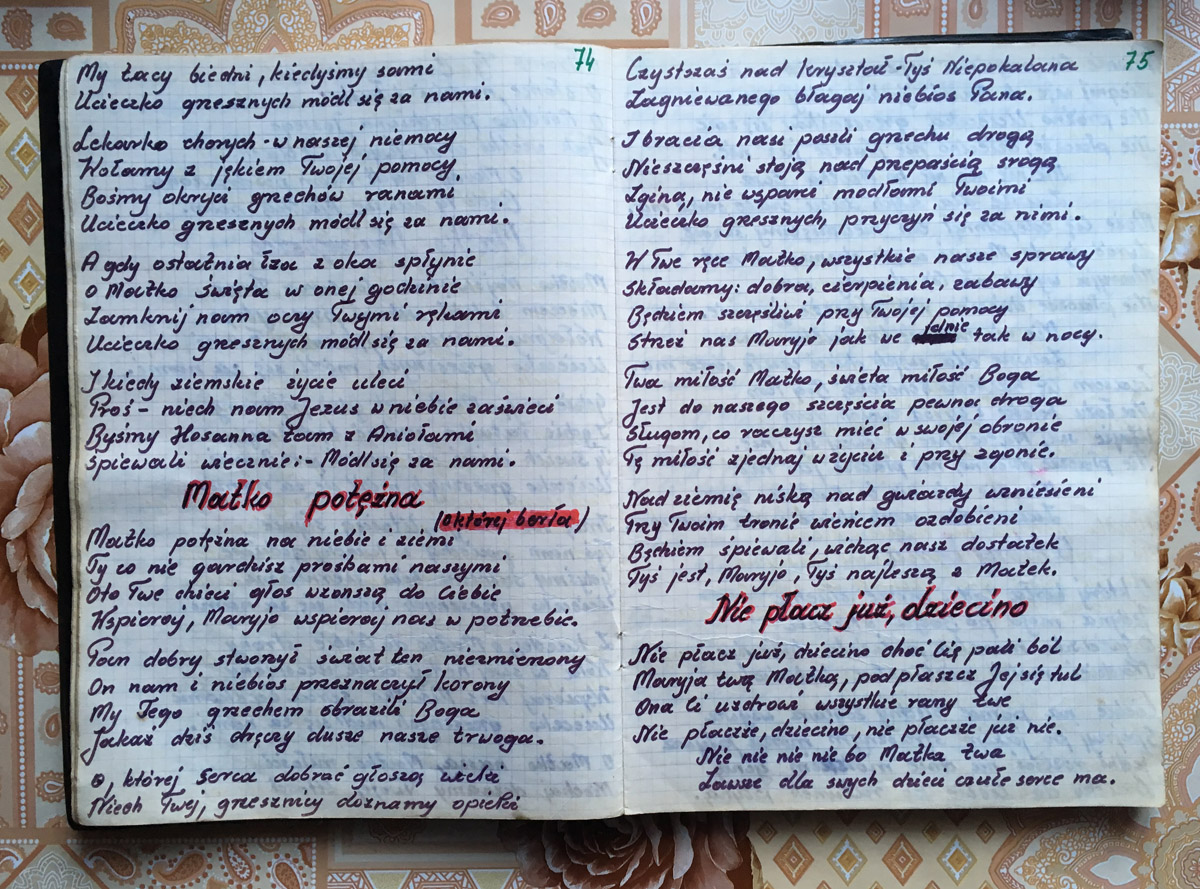 74
My tacy biedni, kiedyśmy sami
Ucieczko grzesznych módl się za nami.
Lekarko chorych - w naszej niemocy
Wołamy z jękiem Twojej pomocy
Bośmy okryci grzechów ranami
Ucieczko grzesznych módl się za nami.
A gdy ostatnia łza z oka spłynie
O Matko Święta w onej godzinie
Zamknij nam oczy Twymi rękami
Ucieczko grzesznych módl się za nami.
I kiedy ziemskie życie uleci
Proś - niech nam Jezus w niebie zaświeci
Byśmy Hosanna tam z Aniołami
Śpiewali wiecznie: - Módl się za nami.
Matko potężna
(której berła)
Matko potężna na niebie i ziemi
Ty co nie gardzisz prośbami naszymi
Oto Twe dzieci głos wznoszą do Ciebie
Wspieraj, Maryjo wspieraj nas w potrzebie.
Pan dobry stworzył świat ten niezmierzony
On nam i niebios przeznaczył korony
My Jego grzechem obrazili Boga
Jakaż dziś dręczy dusze nasze trwoga.
O, której serca dobrać głoszą wieki
Niech Twej, grzesznicy doznamy opieki
75
Czystszaś nad kryształ - Tyś Niepokalana
Zagniewanego błagaj niebios Pana.
I bracia nasi poszli grzechu drogą
Nieszczęśni stoją nad przepaścią srogą
Zginą, nie wsparci modłami Twoimi
Ucieczko grzesznych, przyczyń się za nimi.
W Twe ręce Matko, wszystkie nasze sprawy
Składamy: dobra, cierpienia, zabawy
Będziem szczęśliwi przy Twojej pomocy
Strzeż nas Maryjo jak we dnie tak w nocy.
Twa miłość Matko, święta miłość Boga
Jest do naszego szczęścia pewna droga
Sługom, co raczysz mieć w swojej obronie
Tę miłość zjednaj w życiu i przy zgonie.
Nad ziemię niską nad gwiazdy wzniesieni
Przy Twoim tronie wieńcem ozdobieni
Będziem śpiewali, widząc nasz dostatek
Tyś jest, Maryjo, Tyś najlepszą z Matek.
Nie płacz już, dziecino
Nie płacz już, dziecino choć Cię pali ból
Maryja twą Matką, pod płaszcz Jej się tul
Ona Ci uzdrowi wszystkie rany twe
Nie płaczże, dziecino, nie płaczże już nie.
Nie nie nie nie bo Matka twa
Zawsze dla swych dzieci czułe serce ma.